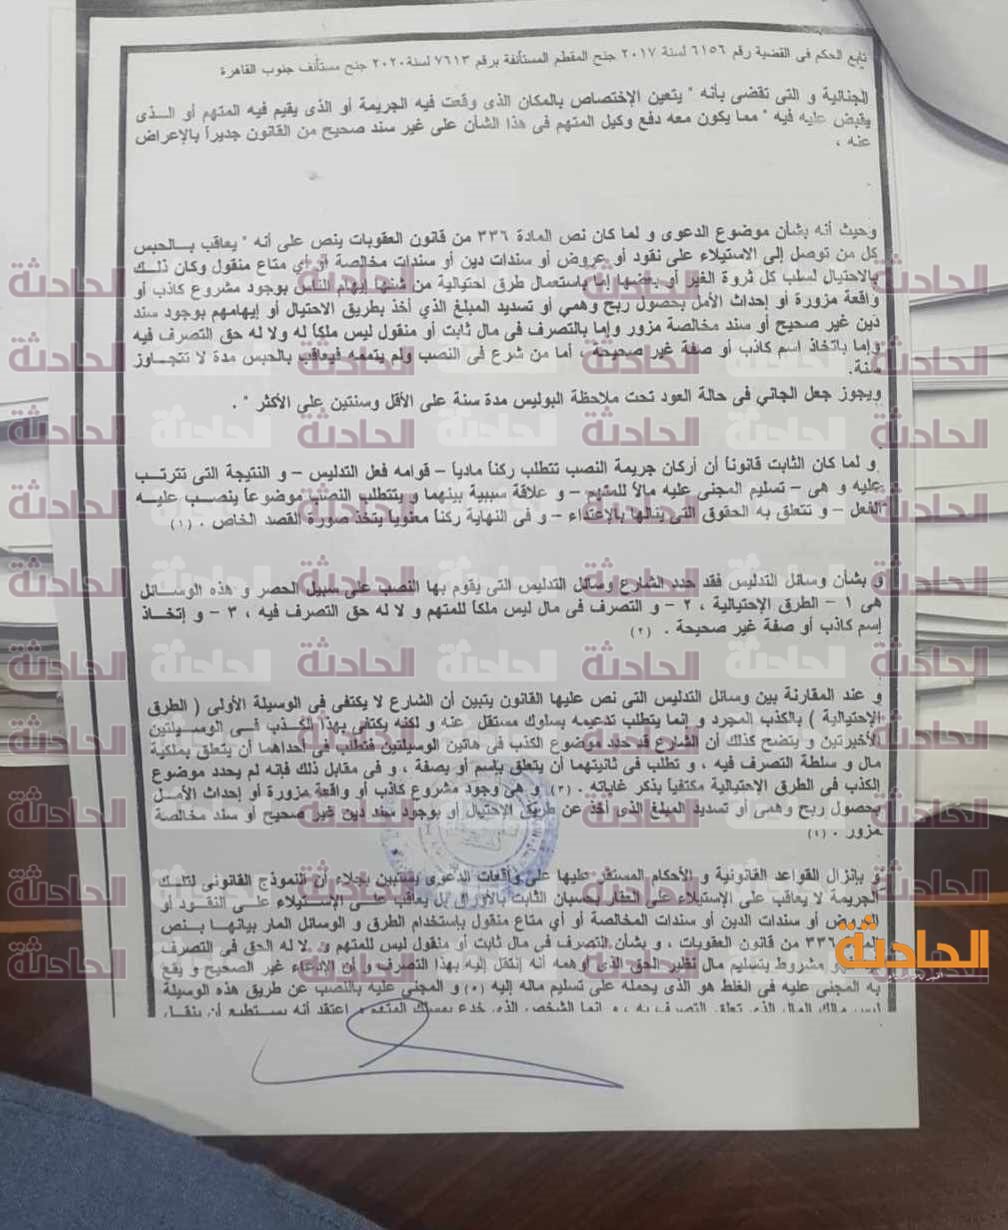 تابع الحكم فى القضية رقم ٦١٥٦ لسنة ٢٠١٧ جنح المقطم المستأنفة برقم ٧٦١٣ لسنة٢٠٢٠ جنح مستأنف جنوب القاهرة
الجنائية و التى تقضى بأنه " يتعين الإختصاص بالمكان الذى وقعت فيه الجريمة أو الذى يقيم فيه المتهم أو الـــذى
يقبض عليه فيه " مما يكون معه دفع وكيل المتهم فى هذا الشأن على غير سند صحيح من القانون جديراً بالإعراض
عنه ،
وحيث أنه بشأن موضوع الدعوى و لما كان نص المادة ٣٣٦ من قانون العقوبات ينص على أنه " يعاقب بـــالحبس
كل من توصل إلى الاستيلاء على نقود أو عروض أو سندات دين أو سندات مخالصة أو أي متاع منقول وكان ذلــك
بالاحتيال لسلب كل ثروة الغير أو بعضها إما باستعمال طرق احتيالية من شأنها إيهام الناس بوجود مشروع كاذب أو
واقعة مزورة أو إحداث الأمل بحصول ربح وهمي أو تسديد المبلغ الذي أخذ بطريق الاحتيال أو إيهامهم بوجود سند
دين غير صحيح أو سند مخالصة مزور وإما بالتصرف في مال ثابت أو منقول ليس ملكاً له ولا له حق التصرف فيه
وإما باتخاذ اسم كاذب أو صفة غير صحيحة ، أما من شرع فى النصب ولم يتممه فيعاقب بالحبس مدة لا تتجــاوز
سنة.
ويجوز جعل الجاني فى حالة العود تحت ملاحظة البوليس مدة سنة على الأقل وسنتين على الأكثر " .
و لما كان الثابت قانوناً أن أركان جريمة النصب تتطلب ركناً مادياً – قوامه فعل التدليس – و النتيجة التى تترتــب
عليه و هى – تسليم المجنى عليه مالاً للمتهم – و علاقة سببية بينهما و يتتطلب النصب موضوعاً ينصــب عليــه
الفعل – و تتعلق به الحقوق التى ينالها بالإعتداء – و فى النهاية ركناً معنوياً يتخذ صورة القصد الخاص . (١)
و بشأن وسائل التدليس فقد حدد الشارع وسائل التدليس التى يقوم بها النصب على سبيل الحصر و هذه الوســـائل
هى ١ – الطرق الإحتيالية ، ٢ – و التصرف فى مال ليس ملكاً للمتهم و لا له حق التصرف فيه ، ٣ – و إتخــاذ
إسم كاذب أو صفة غير صحيحة . (٢)
و عند المقارنة بين وسائل التدليس التى نص عليها القانون يتبين أن الشارع لا يكتفى فى الوسيلة الأولى ( الطرق
الإحتيالية ) بالكذب المجرد و إنما يتطلب تدعيمه بسلوك مستقل عنه و لكنه يكتفى بهذا الكــذب فــى الوسيلتين
الأخيرتين و يتضح كذلك أن الشارع قد حدد موضوع الكذب فى هاتين الوسيلتين فتطلب فى أحداهما أن يتعلق بملكية
مال و سلطة التصرف فيه ، و تطلب فى ثانيتهما أن يتعلق بإسم أو بصفة ، و فى مقابل ذلك فإنه لم يحدد موضوع
الكذب فى الطرق الإحتيالية مكتفياً بذكر غاياته . (٣) و هى وجود مشروع كاذب أو واقعة مزورة أو إحداث الأمــل
بحصول ربح وهمى أو تسديد المبلغ الذى أخذ عن طريق الإحتيال أو بوجود سند دين غير صحيح أو سند مخالصة
مزور . (٤)
و بإنزال القواعد القانونية و الأحكام المستقر عليها على واقعات الدعوى يستبين بجلاء أن النموذج القانونى لتلــك
الجريمة لا يعاقب على الإستيلاء على العقار بحسبان الثابت بالأوراق بل يعاقب علــى الإستيلاء علــى النقــود أو
العروض أو سندات الدين أو سندات المخالصة أو أي متاع منقول بإستخدام الطرق و الوسائل المار بيانهــا بــنص
٣٣٦ من قانون العقوبات ، و بشأن التصرف فى مال ثابت أو منقول ليس للمتهم و لا له الحق فى التصرف
مشروط بتسليم مال نظير الحق الذى أوهمه أنه إنتقل إليه بهذا التصرف و أن الإدعاء غير الصحيح و يقع
به المجنى عليه فى الغلط هو الذى يحمله على تسليم ماله إليه (٥) و المجنى عليه بالنصب عن طريق هذه الوسيلة
ليس مالك المال الذى تعلق التصرف به ، و إنما الشخص الذى خدع بمسلك المتهم و اعتقد أنه يستطيع أن ينقل
الحادثة